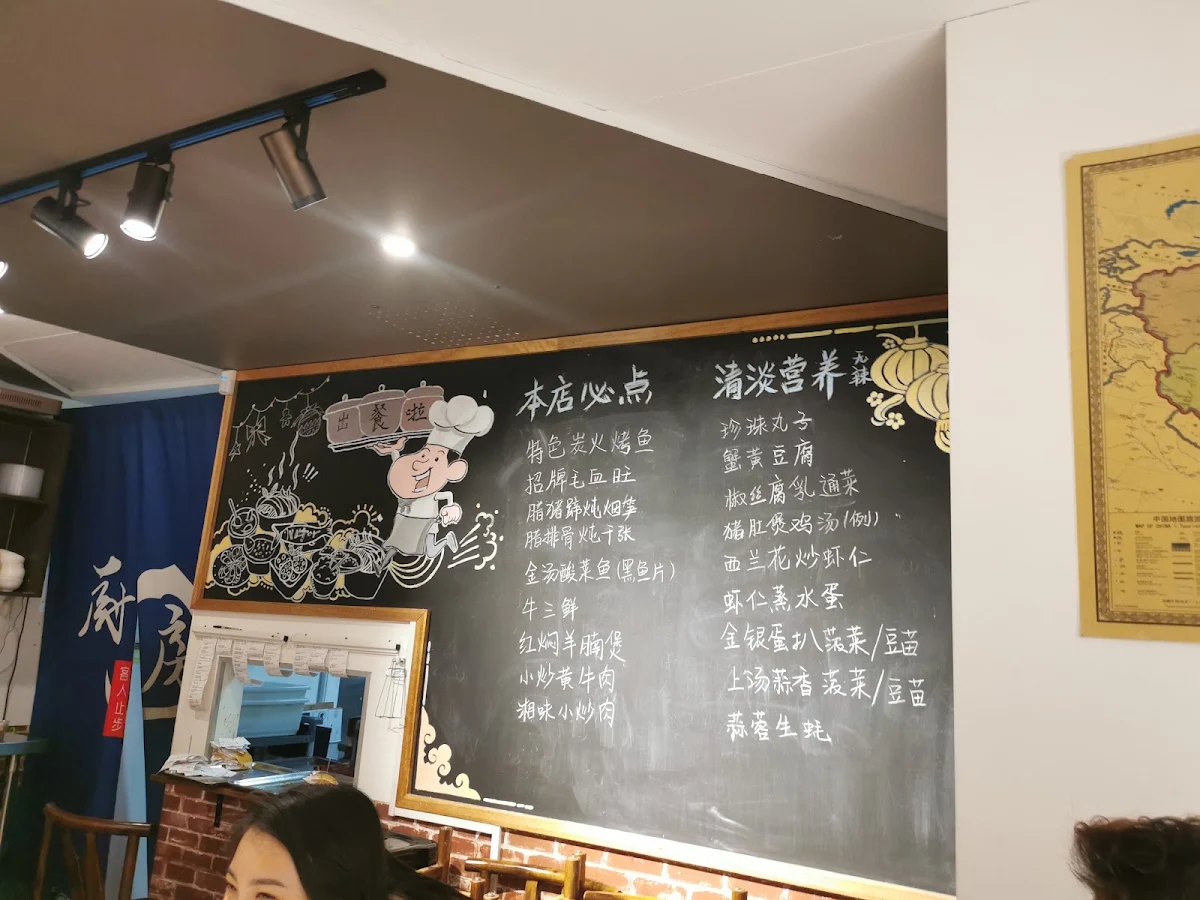 出餐啦
本店必点
特色炭火烤鱼
招牌毛血旺
腊猪蹄炖烟笋
腊排骨炖千张
金汤酸菜鱼(黑鱼片)
牛三鲜
红焖羊腩煲
小炒黄牛肉
湘味小炒肉
清淡营养 无辣
珍珠丸子
蟹黄豆腐
椒丝腐乳通菜
猪肚煲鸡汤(例)
西兰花炒虾仁
虾仁蒸水蛋
金银蛋扒菠菜/豆苗
上汤蒜香菠菜/豆苗
蒜蓉生蚝
厨房
客人止步
中国地图